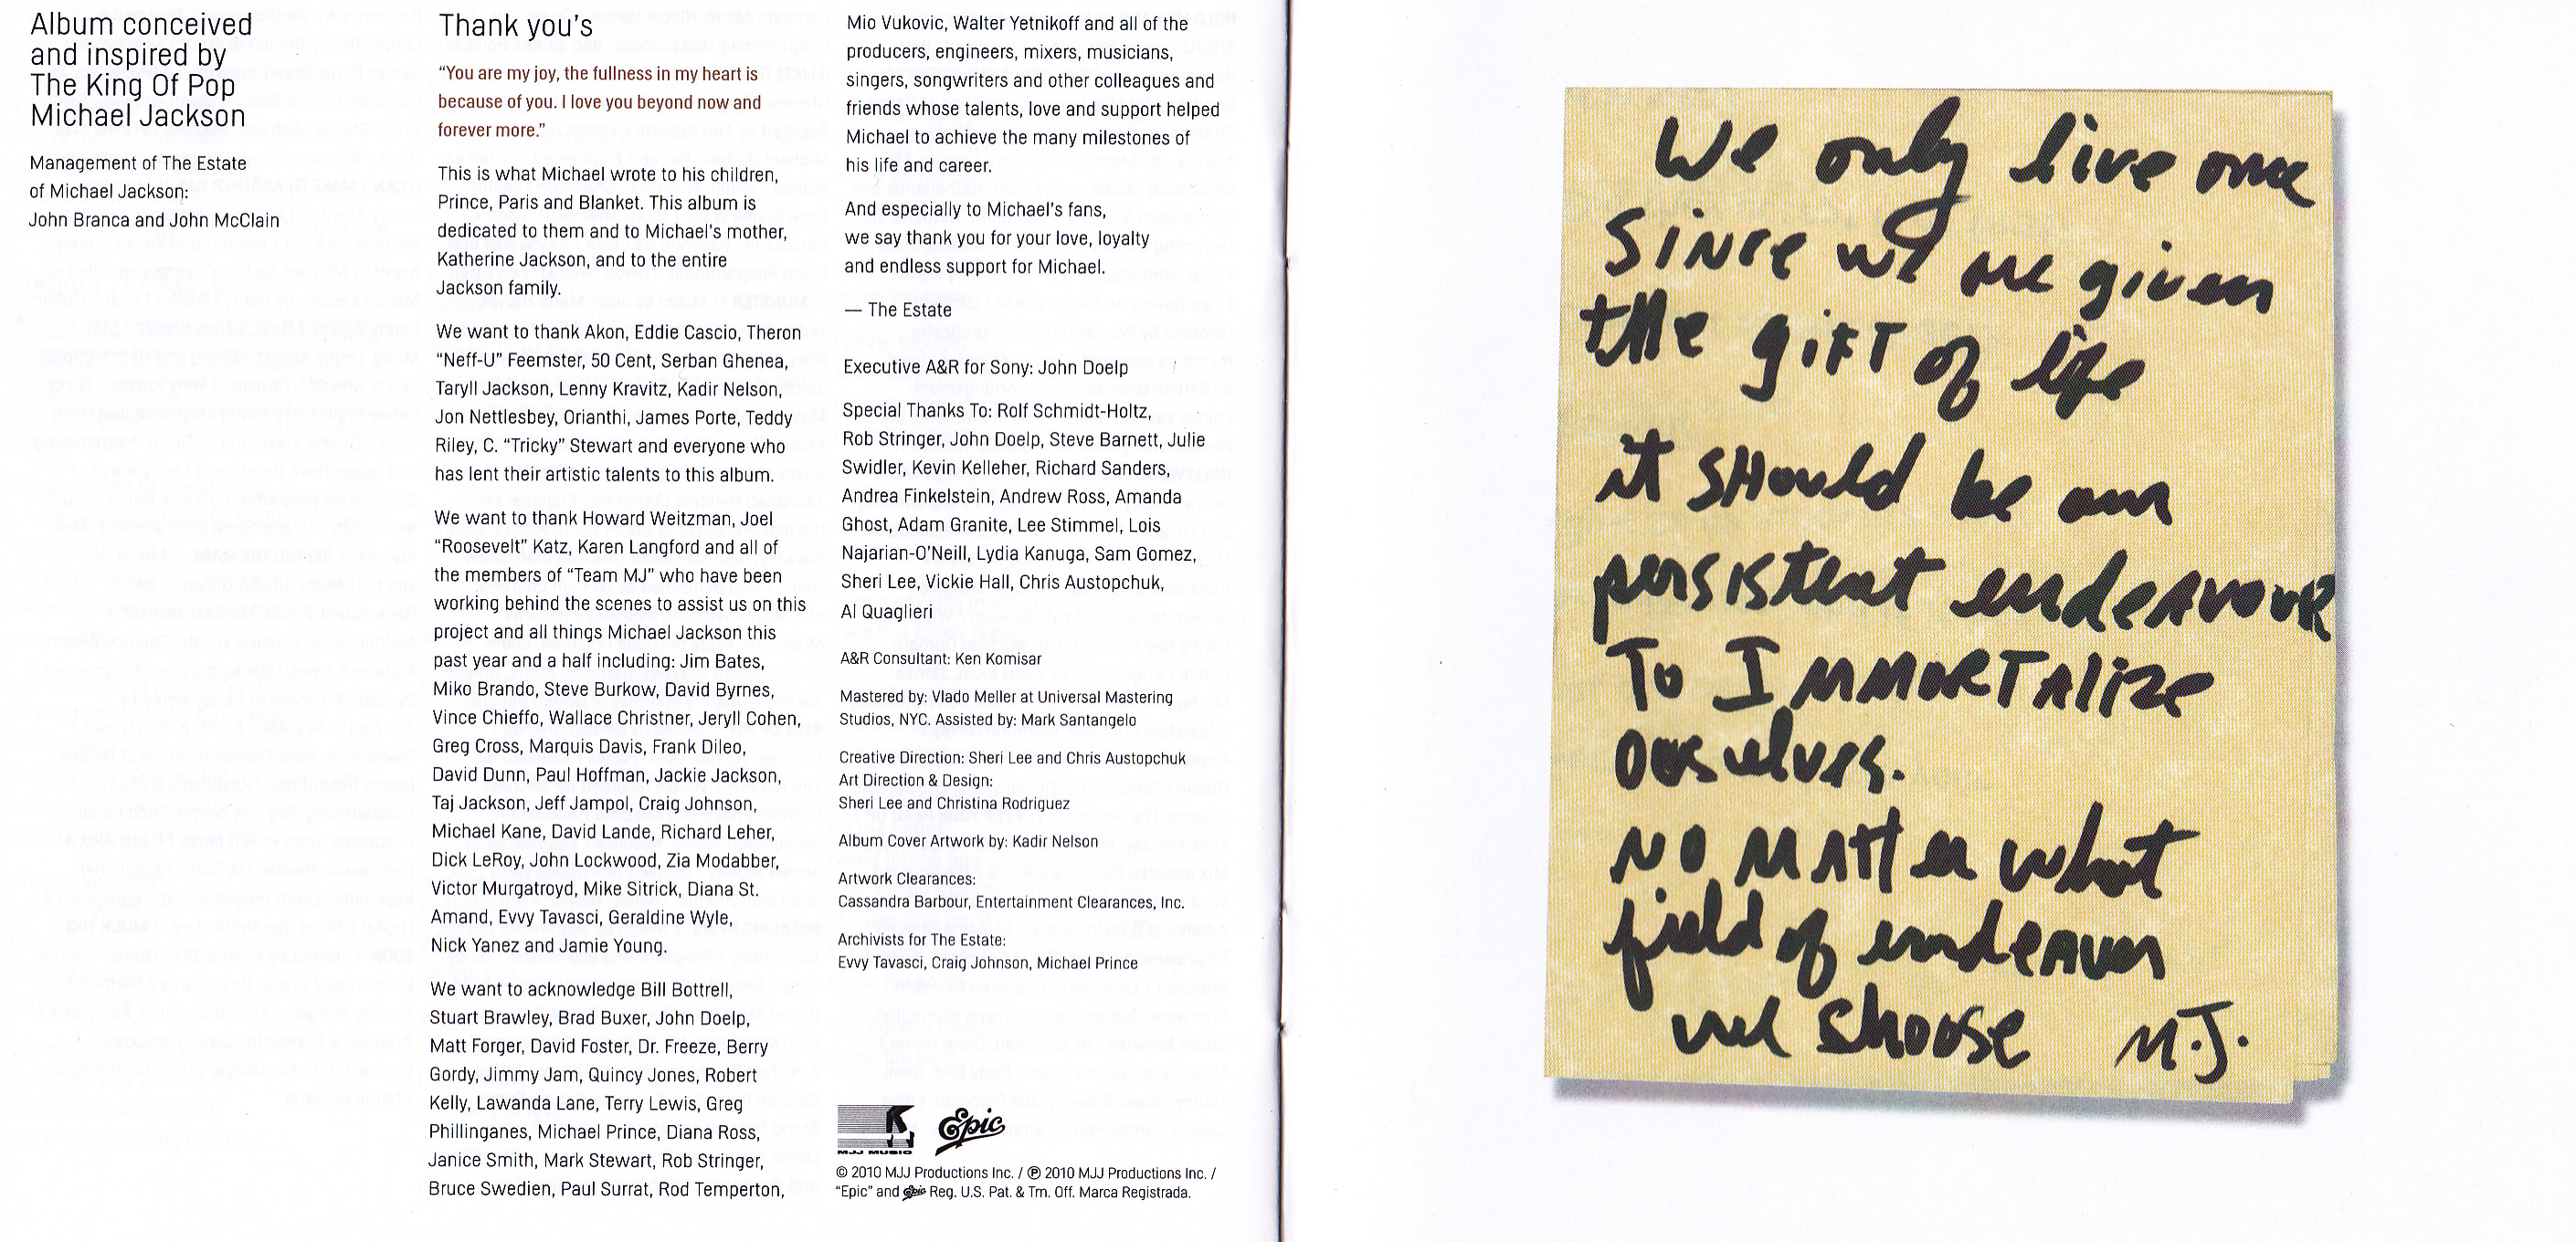 Album conceived
and inspired by
The King Of Pop
Michael Jackson
Management of The Estate
of Michael Jackson:
John Branca and John McClain
Thank you's
“You are my joy, the fullness in my heart is
because of you. I love you beyond now and
forever more.”
This is what Michael wrote to his children,
Prince, Paris and Blanket. This album is
dedicated to them and to Michael's mother,
Katherine Jackson, and to the entire
Jackson family.
We want to thank Akon, Eddie Cascio, Theron
“Neff-U” Feemster, 50 Cent, Serban Ghenea,
Taryll Jackson, Lenny Kravitz, Kadir Nelson,
Jon Nettlesbey, Orianthi, James Porte, Teddy
Riley, C. “Tricky” Stewart and everyone who
has lent their artistic talents to this album.
We want to thank Howard Weitzman, Joel
“Roosevelt” Katz, Karen Langford and all of
the members of “Team MJ” who have been
working behind the scenes to assist us on this
project and all things Michael Jackson this
past year and a half including: Jim Bates,
Miko Brando, Steve Burkow, David Byrnes,
Vince Chieffo, Wallace Christner, Jeryll Cohen,
Greg Cross, Marquis Davis, Frank Dileo,
David Dunn, Paul Hoffman, Jackie Jackson,
Taj Jackson, Jeff Jampol, Craig Johnson,
Michael Kane, David Lande, Richard Leher,
Dick LeRoy, John Lockwood, Zia Modabber,
Victor Murgatroyd, Mike Sitrick, Diana St.
Amand, Evvy Tavasci, Geraldine Wyle,
Nick Yanez and Jamie Young.
We want to acknowledge Bill Bottrell,
Stuart Brawley, Brad Buxer, John Doelp,
Matt Forger, David Foster, Dr. Freeze, Berry
Gordy, Jimmy Jam, Quincy Jones, Robert
Kelly, Lawanda Lane, Terry Lewis, Greg
Phillinganes, Michael Prince, Diana Ross,
Janice Smith, Mark Stewart, Rob Stringer,
Bruce Swedien, Paul Surrat, Rod Temperton,
Mio Vukovic, Walter Yetnikoff and all of the
producers, engineers, mixers, musicians,
singers, songwriters and other colleagues and
friends whose talents, love and support helped
Michael to achieve the many milestones of
his life and career.
And especially to Michael's fans,
we say thank you for your love, loyalty
and endless support for Michael.
— The Estate
Executive A&R for Sony: John Doelp
Special Thanks To: Rolf Schmidt-Holtz,
Rob Stringer, John Doelp, Steve Barnett, Julie
Swidler, Kevin Kelleher, Richard Sanders,
Andrea Finkelstein, Andrew Ross, Amanda
Ghost, Adam Granite, Lee Stimmel, Lois
Najarian-O'Neill, Lydia Kanuga, Sam Gomez,
Sheri Lee, Vickie Hall, Chris Austopchuk,
Al Quaglieri
A&R Consultant: Ken Komisar
Mastered by: Vlado Meller at Universal Mastering
Studios, NYC. Assisted by: Mark Santangelo
Creative Direction: Sheri Lee and Chris Austopchuk
Art Direction & Design:
Sheri Lee and Christina Rodriguez
Album Cover Artwork by: Kadir Nelson
Artwork Clearances:
Cassandra Barbour, Entertainment Clearances, Inc.
Archivists for The Estate:
Evvy Tavasci, Craig Johnson, Michael Prince
MJJ MUSIC
Epic
© 2010 MJJ Productions Inc. / ℗ 2010 MJJ Productions Inc. /
“Epic” and Epic Reg. U.S. Pat. & Tm. Off. Marca Registrada.
We only live once
SINCE we are given
the GIFT of life
it SHould be our
persistent endeavour
To IMMORTAlize
ourselves.
NO MATTer what
field of endeavor
we choose M.J.